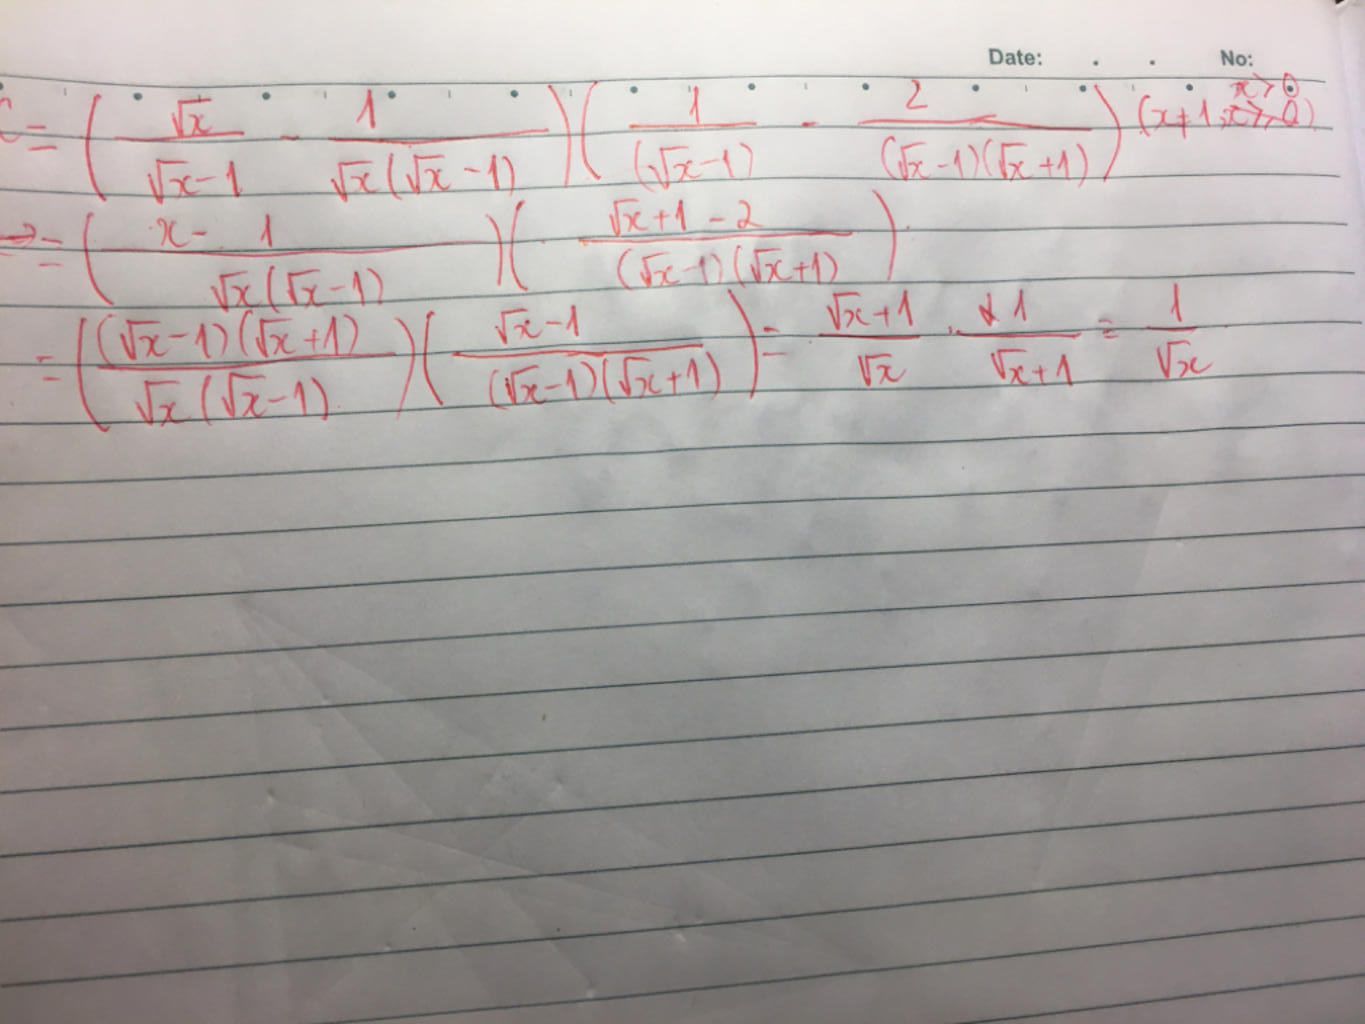 Date: . . No:
= (√x/(√x-1) - 1/(√x(√x-1)))(1/(√x-1) - 2/((√x-1)(√x+1))) (x≠1, x>0)
= ((x-1)/(√x(√x-1)))((√x+1-2)/((√x-1)(√x+1)))
= ((√x-1)(√x+1)/(√x(√x-1)))((√x-1)/((√x-1)(√x+1))) = (√x+1)/√x . 1/(√x+1) = 1/√x